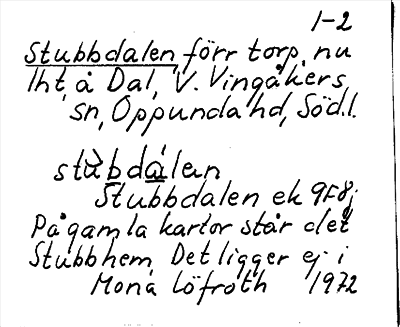 1-2
Stubbdalen förr torp, nu
lht, å Dal, V. Vingåkers
sn, Oppunda hd, Söd.l.
stùbdálen
Stubbdalen ek 9F8j
På gamla kartor står det
Stubbhem. Det ligger ej i
Mona Löfroth 1972